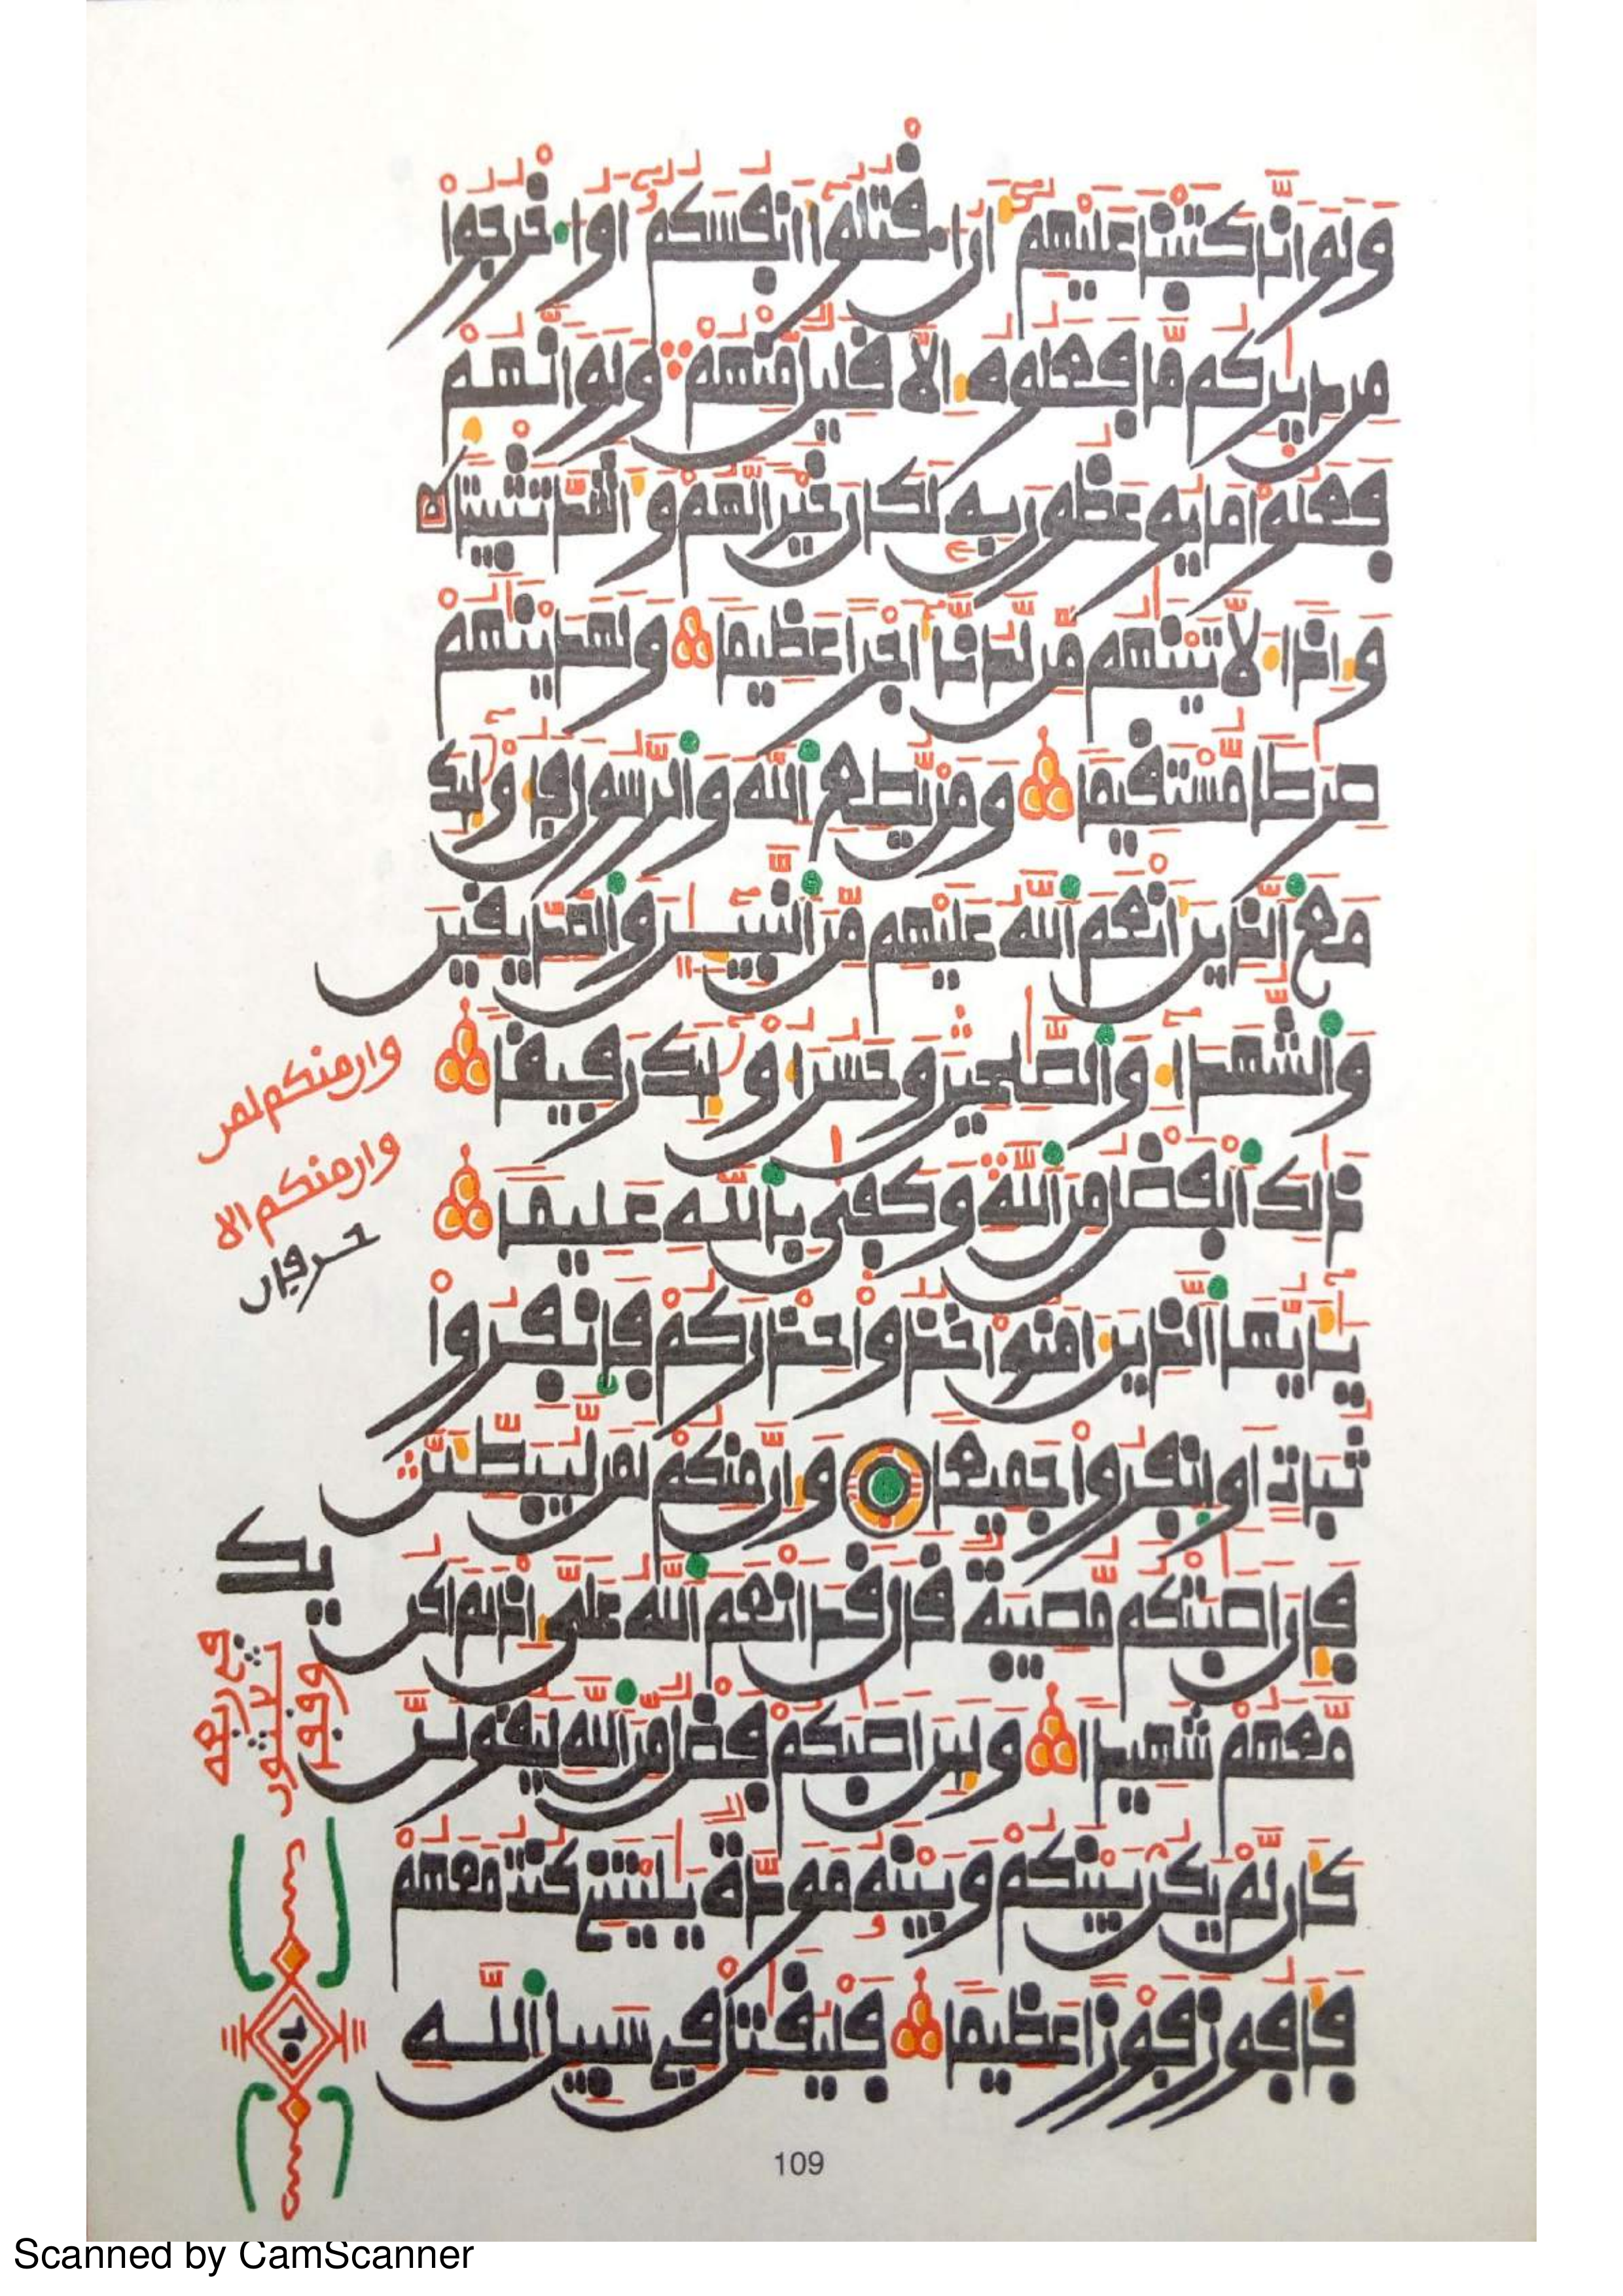 ولو انا كتبنا عليهم ان اقتلوا انفسكم او اخرجوا
من ديركم ما فعلوه الا قليل منهم ولو انهم
فعلوا ما يوعظون به لكان خيرا لهم واشد تثبيتا
واذا لاتينهم من لدنا اجرا عظيما ولهدينهم
صرطا مستقيما ومن يطع الله والرسول فاولىك
مع الذين انعم الله عليهم من النبيين والصديقين
والشهدا والصلحين وحسن اولىك رفيقا
ذلك الفضل من الله وكفى بالله عليما
يايها الذين امنوا خذوا حذركم فانفروا
ثبات او انفروا جميعا وان منكم لمن ليبطين
فان اصبتكم مصيبة قال قد انعم الله على اذ لم اكن
معهم شهيدا ولين اصبكم فضل من الله ليقولن
كان لم يكن بينكم وبينه مودة يليتني كنت معهم
فافوز فوزا عظيما فليقتل في سبيل الله
وان منكم لمن
وان منكم الا
حرفان
109
Scanned by CamScanner